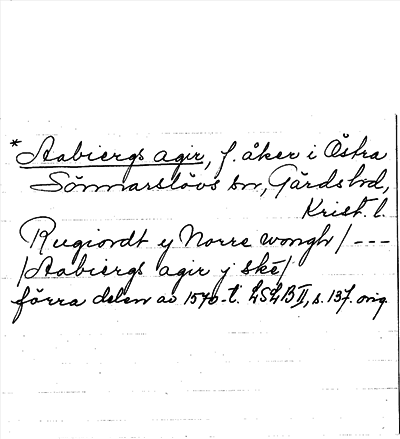 *Aabiergs agir, f. åker i Östra
Sönnarslövs sn, Gärds hd,
Krist. l.
Rugiordt y Norre wongh/ ---
/Aabiergs agir j skè/
förra delen av 1570-t. LSLB II, s. 137. orig.